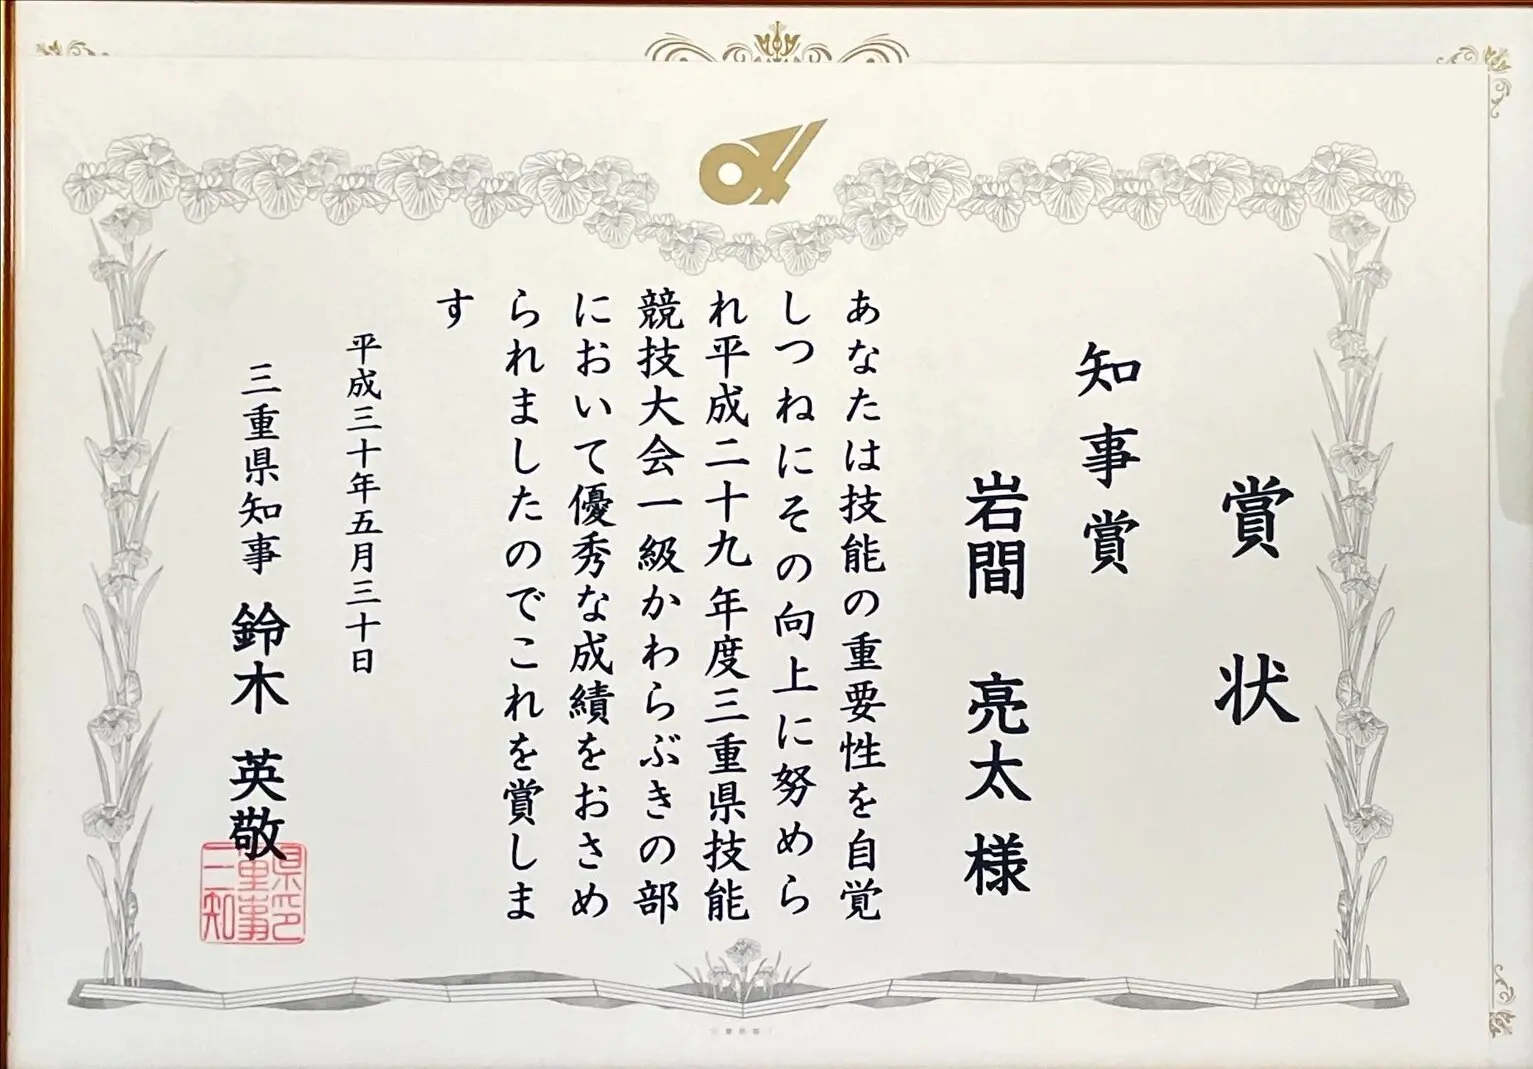 賞状
知事賞
岩間 亮太 様
あなたは技能の重要性を自覚
しつねにその向上に努めら
れ平成二十九年度三重県技能
競技大会一級かわらぶきの部
において優秀な成績をおさめ
られましたのでこれを賞しま
す
平成三十年五月三十日
三重県知事 鈴木 英敬
三重県知事印